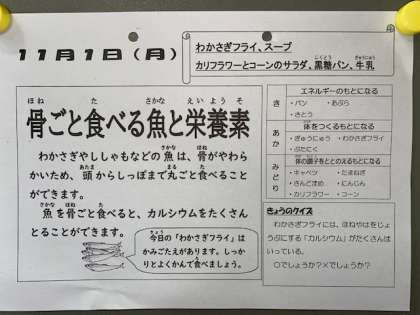 11月1日(月)
わかさぎフライ、スープ
カリフラワーとコーンのサラダ、黒糖パン、牛乳
骨ごと食べる魚と栄養素
わかさぎやししゃもなどの魚は、骨がやわら
かいため、頭からしっぽまで丸ごと食べること
ができます。
魚を骨ごと食べると、カルシウムをたくさん
とることができます。
今日の「わかさぎフライ」は
かみごたえがあります。しっか
りとよくかんで食べましょう。
エネルギーのもとになる
き
・パン ・あぶら
・さとう
体をつくるもとになる
あか
・ぎゅうにゅう ・わかさぎフライ
・ぶたにく
体の調子をととのえるもとになる
みどり
・キャベツ ・たまねぎ
・さんどまめ ・にんじん
・カリフラワー ・コーン
きょうのクイズ
わかさぎフライには、ほねやはをじょ
うぶにする「カルシウム」がたくさんは
いっている。
○でしょうか?×でしょうか?